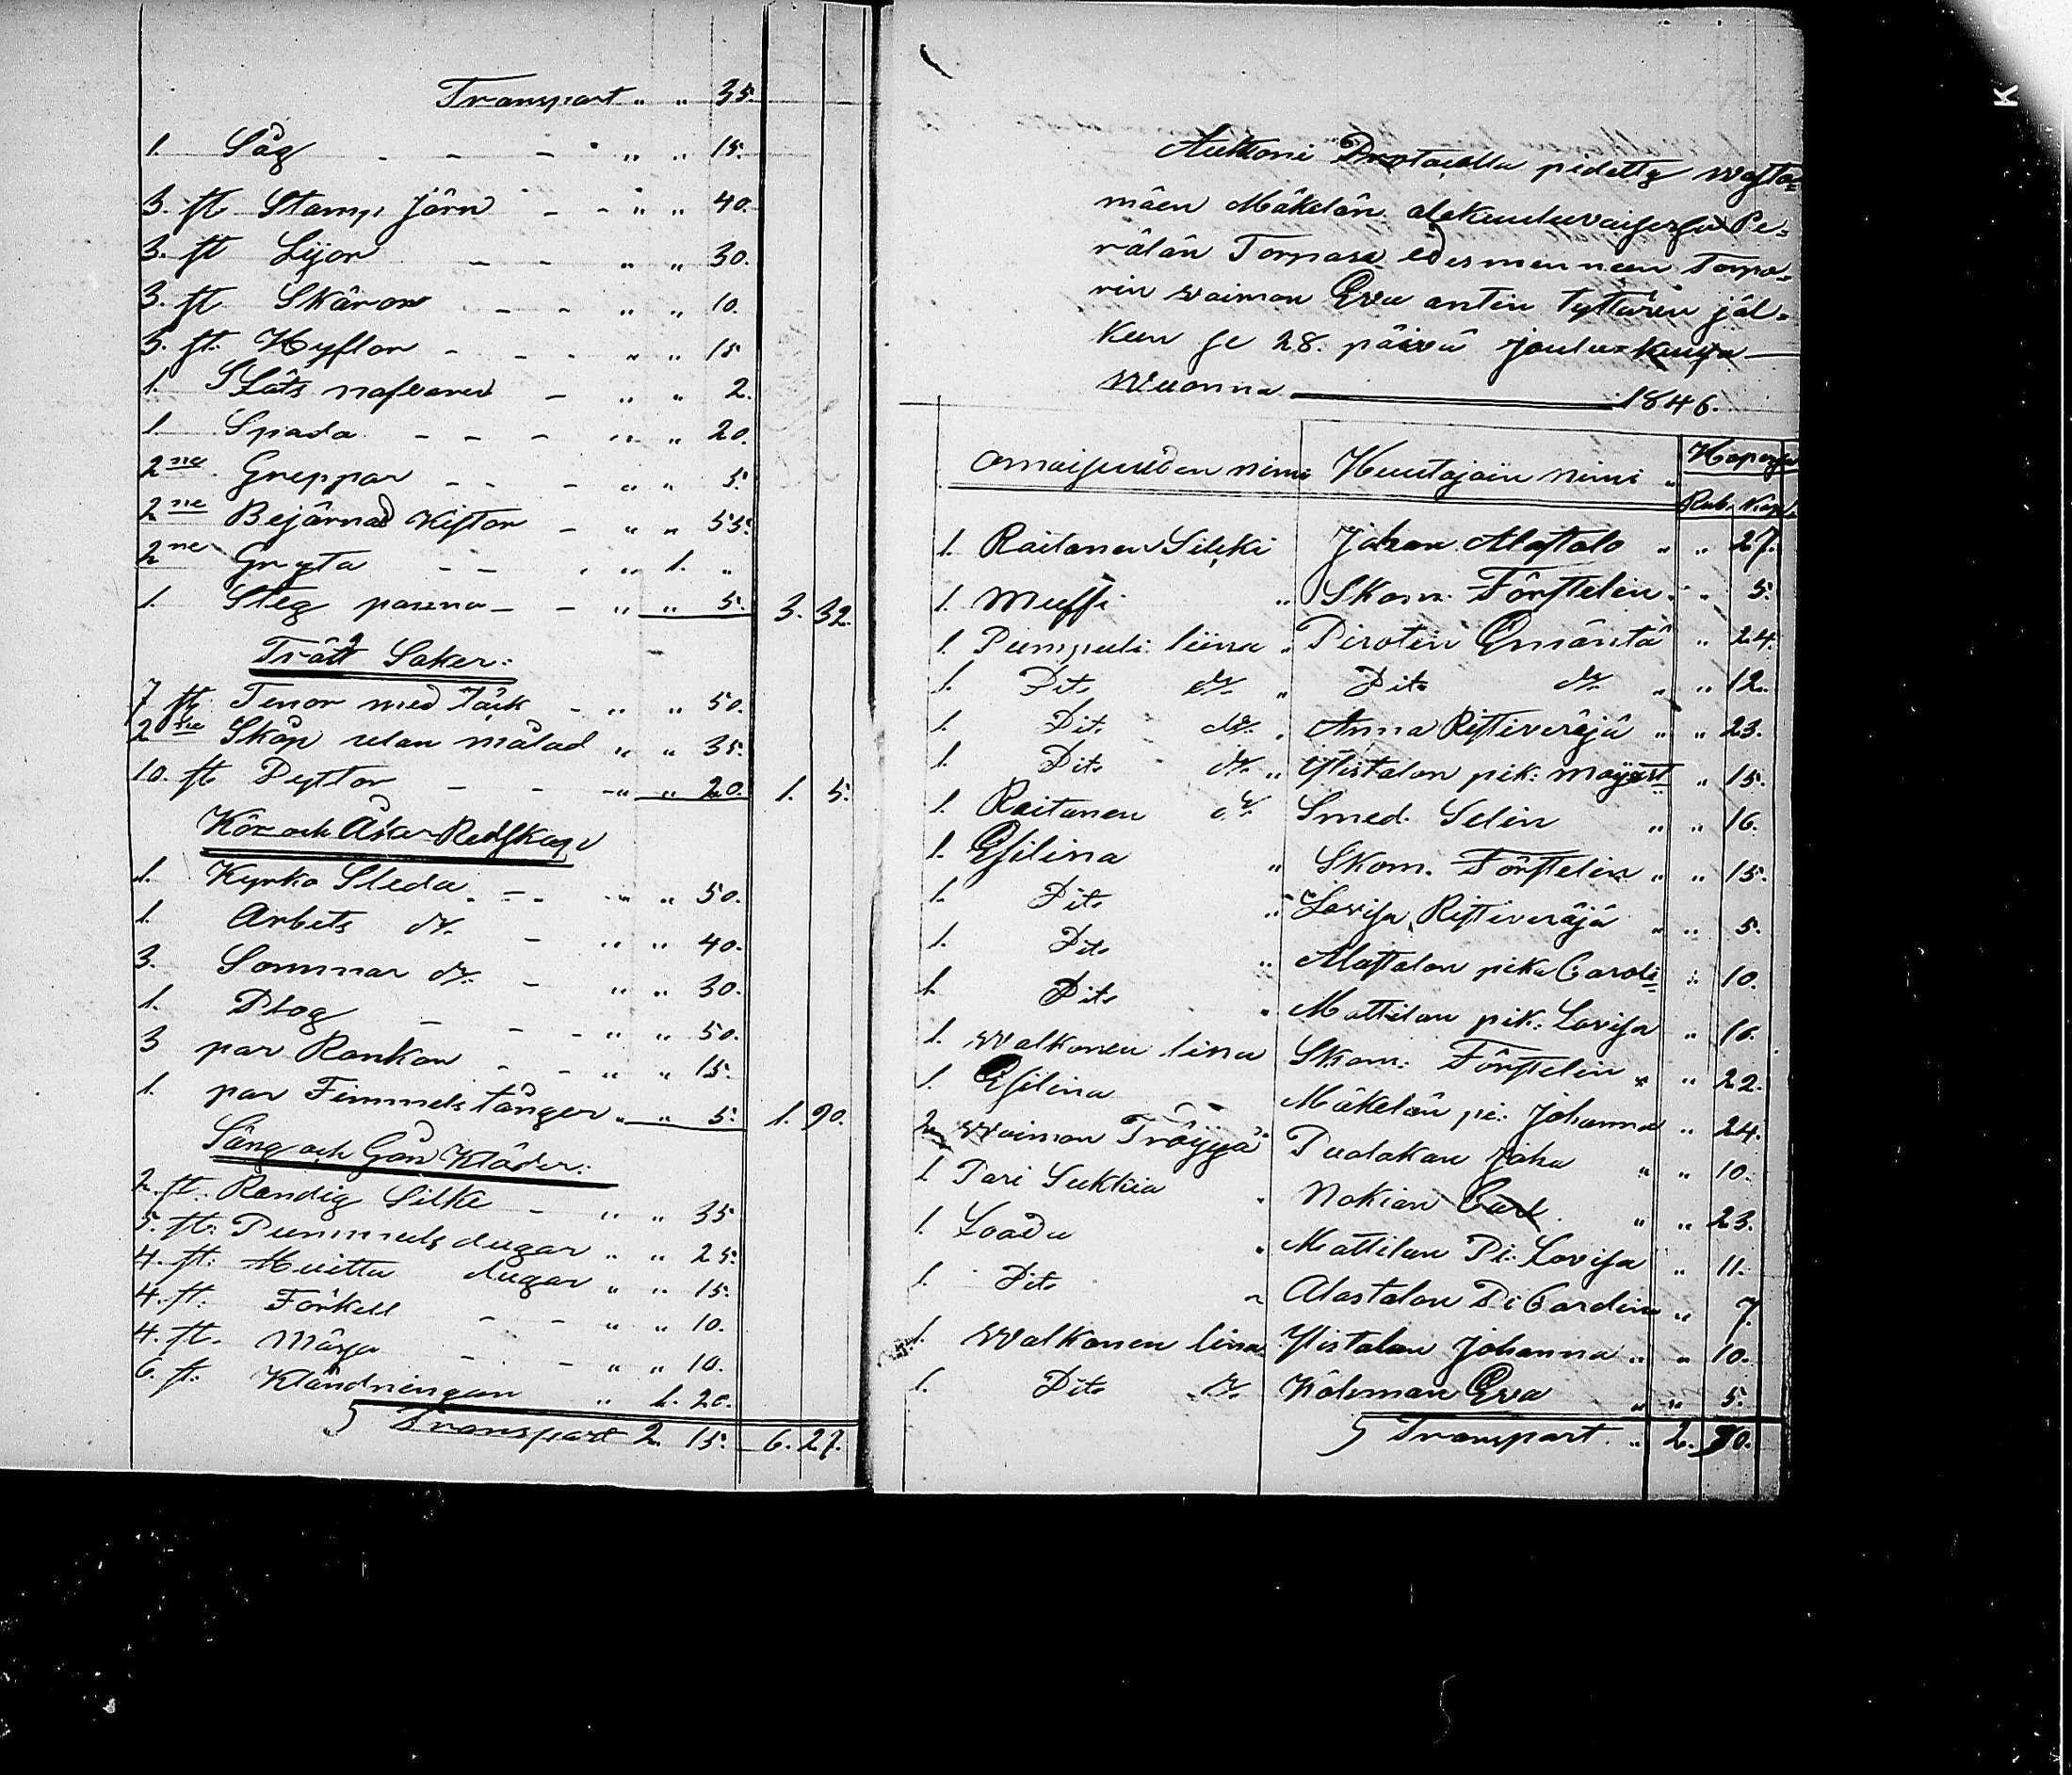 Transport " " 35.
1. Såg - - - " " 15.
3. st Stamp Järn - - " " 40.
3. st Lijor - - " " 30.
3. st Skäror - - " " 10.
3. st. Hyflar - - - " " 15
1. Slåts nafvared - " " 2.
1. Spada - - - " " 20.
2ne Greppar - - - " " 5.
2ne Bejärnad Kistor - " " 55.
2ne Gryta - - " 1. "
1. Steg panna - - " " 5. 3. 32.
Trätt Saker:
7 st Tenor med täck - " " 50.
2ne Skåp utan målad " " 35.
10. st Pyttor - - " " 20. 1. 5.
Kör och Åker Redskap
1. Kyrko Sleda - - " " 50.
1. Arbets do - " " 40.
3. Sommar do - " " 30.
1. Plog - - - " " 50.
3 par Rankor - - " " 15.
1. par Fimmelstånger " " 5. 1. 90.
Säng och Gån Kläder:
2. st. Randig Silke - " " 35
5. st. Pummuls dugar " " 25.
4. st. Muitta dugar " " 15.
4. st. Förkell - - " " 10.
4. st. Märja - - " " 10.
6. st. Kländningar " 1. 20.
Transport 2. 15. 6. 27.
Auktioni Protocolla pidetty Wasta=
mäen Mäkelän alakuuluvaisesa Pe=
rälän Torpasa edesmenneen Torpa=
rin waimon Eva antin tyttären jäl=
keen se 28. päivä Joulu=kuusa
Wuonna 1846.
omaisuuden nimi Huutajain nimi " Hopeasa
Rub. Kop.
1. Raitanen Silcki Johan Alastalo " " 27.
1. Muffi " Skom. Förstelin " " 5.
1. Pumpuli liina " Pirotin Emäntä " 24.
1. Dito do " Dito do " " 12.
1. Dito do " Anna Ristiveräjä " " 23.
1. Dito do " Ylistalon pik: " 15.
1. Raitanen do Smed. Selin " " 16.
1. Esilina " Skom. Förstelin " " 15.
1. Dito " Lovisa Ristiveräjä " " 5.
1. Dito " Alastalon pika Caroli= " 10.
1. Dito " Mattilan pik: Lovisa " 16.
1. Walkonen lina Skom: Förstelin " " 22.
1. Esilina Mäkelän pi: Johanna " 24.
2 Waimon Tröyyjä Pualakan Joha " " 10.
1 Pari Sukkia " Nokian Carl " " 23.
1. Loadu " Mattilan Pi: Lovisa " 11.
1. Dito " Alastalon Pi Carolina " 7.
1. Walkonen lina Ylistalon Johanna " " 10.
1. Dito do Kölsman Eva " " 5.
Transport " 2. 90.